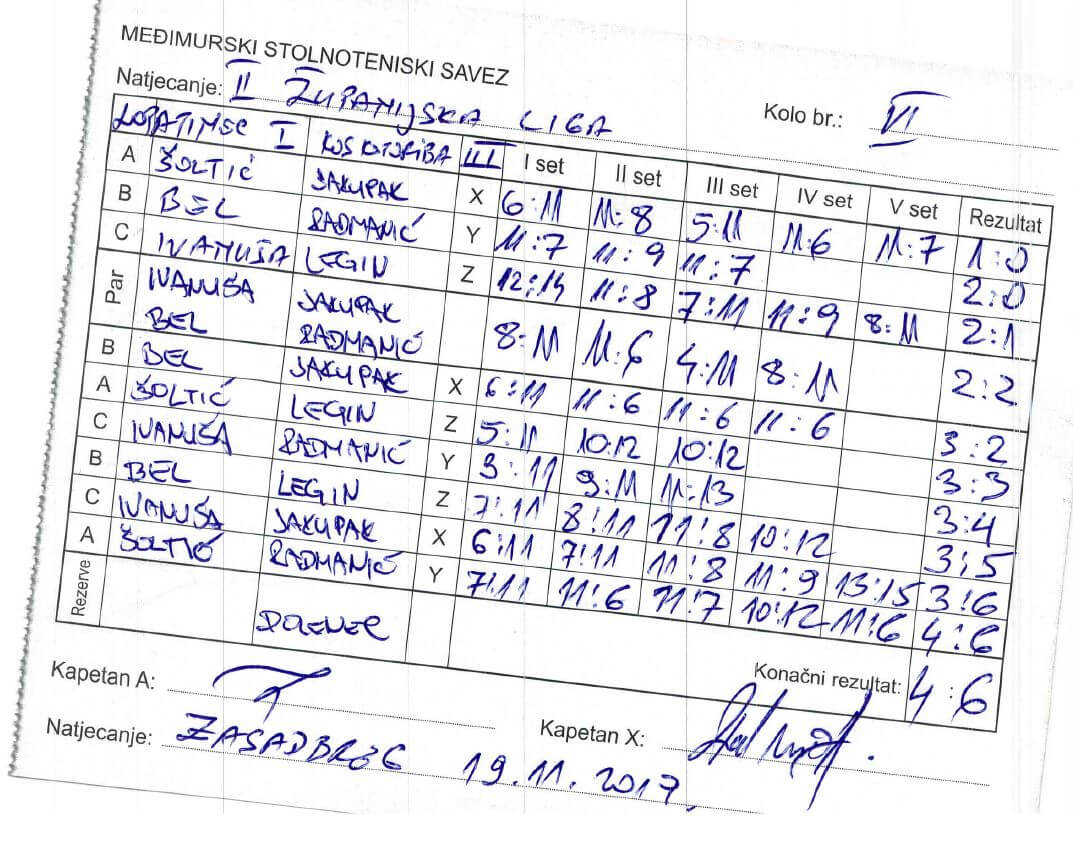 MEĐIMURSKI STOLNOTENISKI SAVEZ
Natjecanje: II ŽUPANIJSKA LIGA Kolo br.: VI
LOPATINEC I KUS KOTORIBA III I set II set III set IV set V set Rezultat
A ŠOLTIĆ JAKUPAK X 6:11 11:8 5:11 11:6 11:7 1:0
B BEL RADMANIĆ Y 11:7 11:9 11:7 2:0
C IVANUŠA LEGIN Z 12:14 11:8 7:11 11:9 8:11 2:1
Par IVANUŠA BEL JAKUPAK RADMANIĆ 8:11 11:6 4:11 8:11 2:2
B BEL JAKUPAK X 6:11 11:6 11:6 11:6 3:2
A ŠOLTIĆ LEGIN Z 5:11 10:12 10:12 3:3
C IVANUŠA RADMANIĆ Y 3:11 9:11 11:13 3:4
B BEL LEGIN Z 7:11 8:11 11:8 10:12 3:5
C IVANUŠA JAKUPAK X 6:11 7:11 11:8 11:9 13:15 3:6
A ŠOLTIĆ RADMANIĆ Y 7:11 11:6 11:7 10:12 11:6 4:6
Rezerve DOLENEC
Konačni rezultat: 4:6
Kapetan A: Kapetan X:
Natjecanje: ZASADBREG 19.11.2017.